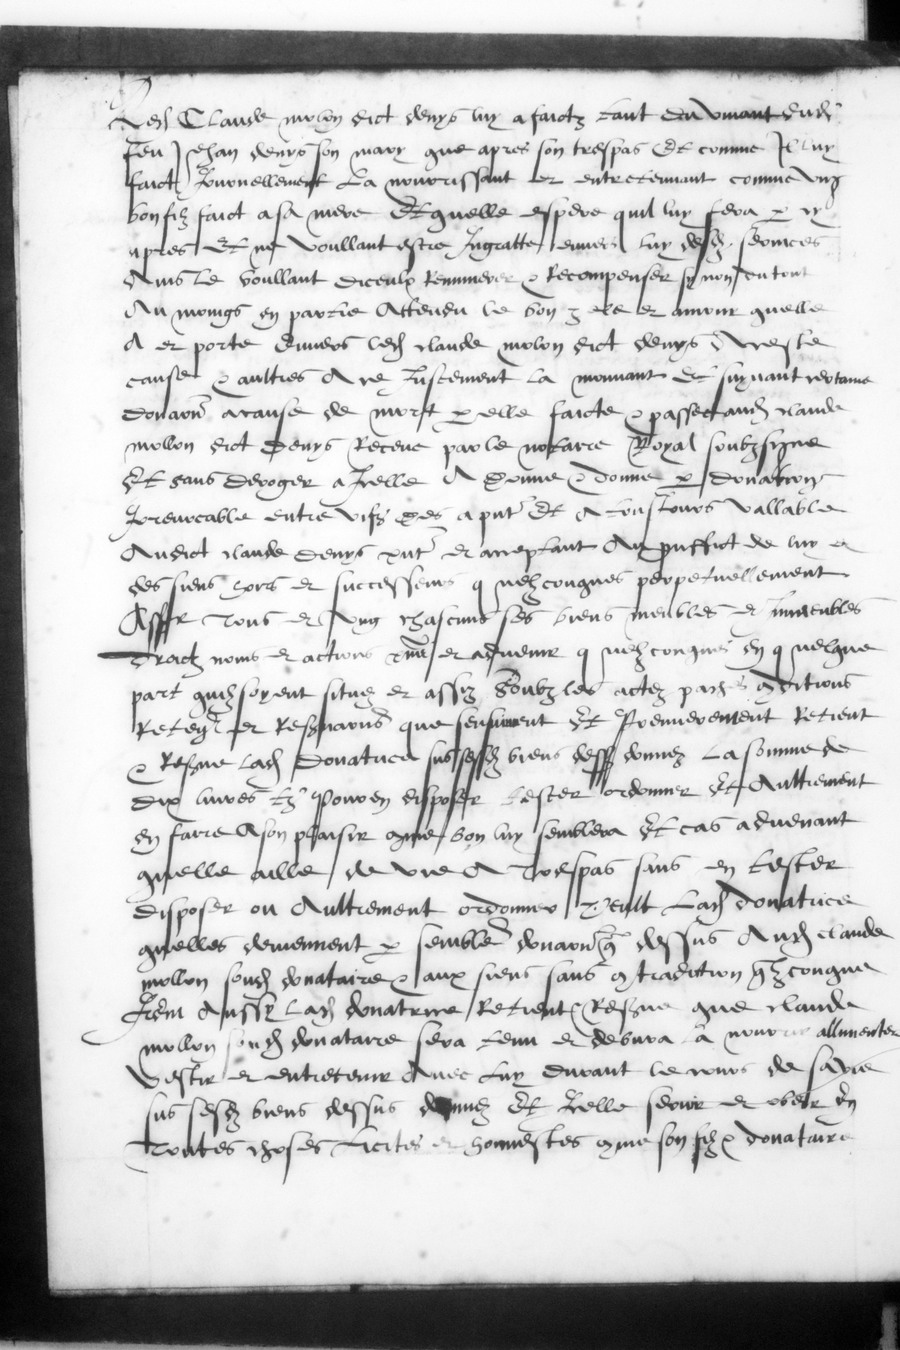 led Claude molon dict denys luy a faictz tant du vivant dud
feu Jehan denys son mary que apres son trespas Et comme Il luy
faict Journellement La nourrissant et entretenant comme ung
bon filz faict a sa mere Et quelle espere quil luy fera p cy
apres Et ne voullant estre Ingratte envers luy desd services
Ains le voullant diceulx Remunerer & Recompenser sy non en tout
Au moings en partie Attendu le bon zele et amour quelle
A et porte Envers led claude molon dict denys A ceste
cause & aultres A ce Justement la mouvant Et suyvant certaine
donaon a cause de mort p elle faicte & passee aud claude
mollon dict Denys Receue par le notaire Royal soubzsigne
Et sans deroger a Icelle A donne & donne p donation
Irrevocable entre vifz des a pnt Et A tousjours vallable
Audict claude denys pnt et acceptant Au proffict de luy et
des siens hoirs et successeurs quelzconques perpetuellement
Assr Tous et ung chascuns ses biens meubles et Immeubles
Traictz noms et actions pns et advenir quelzconques en quelque
part quilz soyent situez et assiz Soubz les actes pactes conditions
Retegn et Reservaons que sensuivent Et Premierement Retient
& Reserve lad Donatrice sus sesd biens dess donnez La somme de
dix livres tz Pour en disposer tester ordonner Et Aultrement
en faire A son plaisir comme bon luy semblera Et cas advenant
quelle aille de vie A Trespas sans en tester
disposer ou Aultrement ordonner Veult Lad donatrice
quelles deviennent p semble donaon que dessus Aud claude
mollon sond donataire & aux siens sans contradiction quelzconque
Item Aussy Lad donatrice Retient & Reserve que claude
mollon sond donataire sera tenu et debvra la nourrir allimenter
Vestir et entretenir Avec luy durant le cours de sa vie
sus sesd biens dessus donnez Et Icelle servir et obeir En
Toutes choses Licites et honnestes comme son filz & donataire